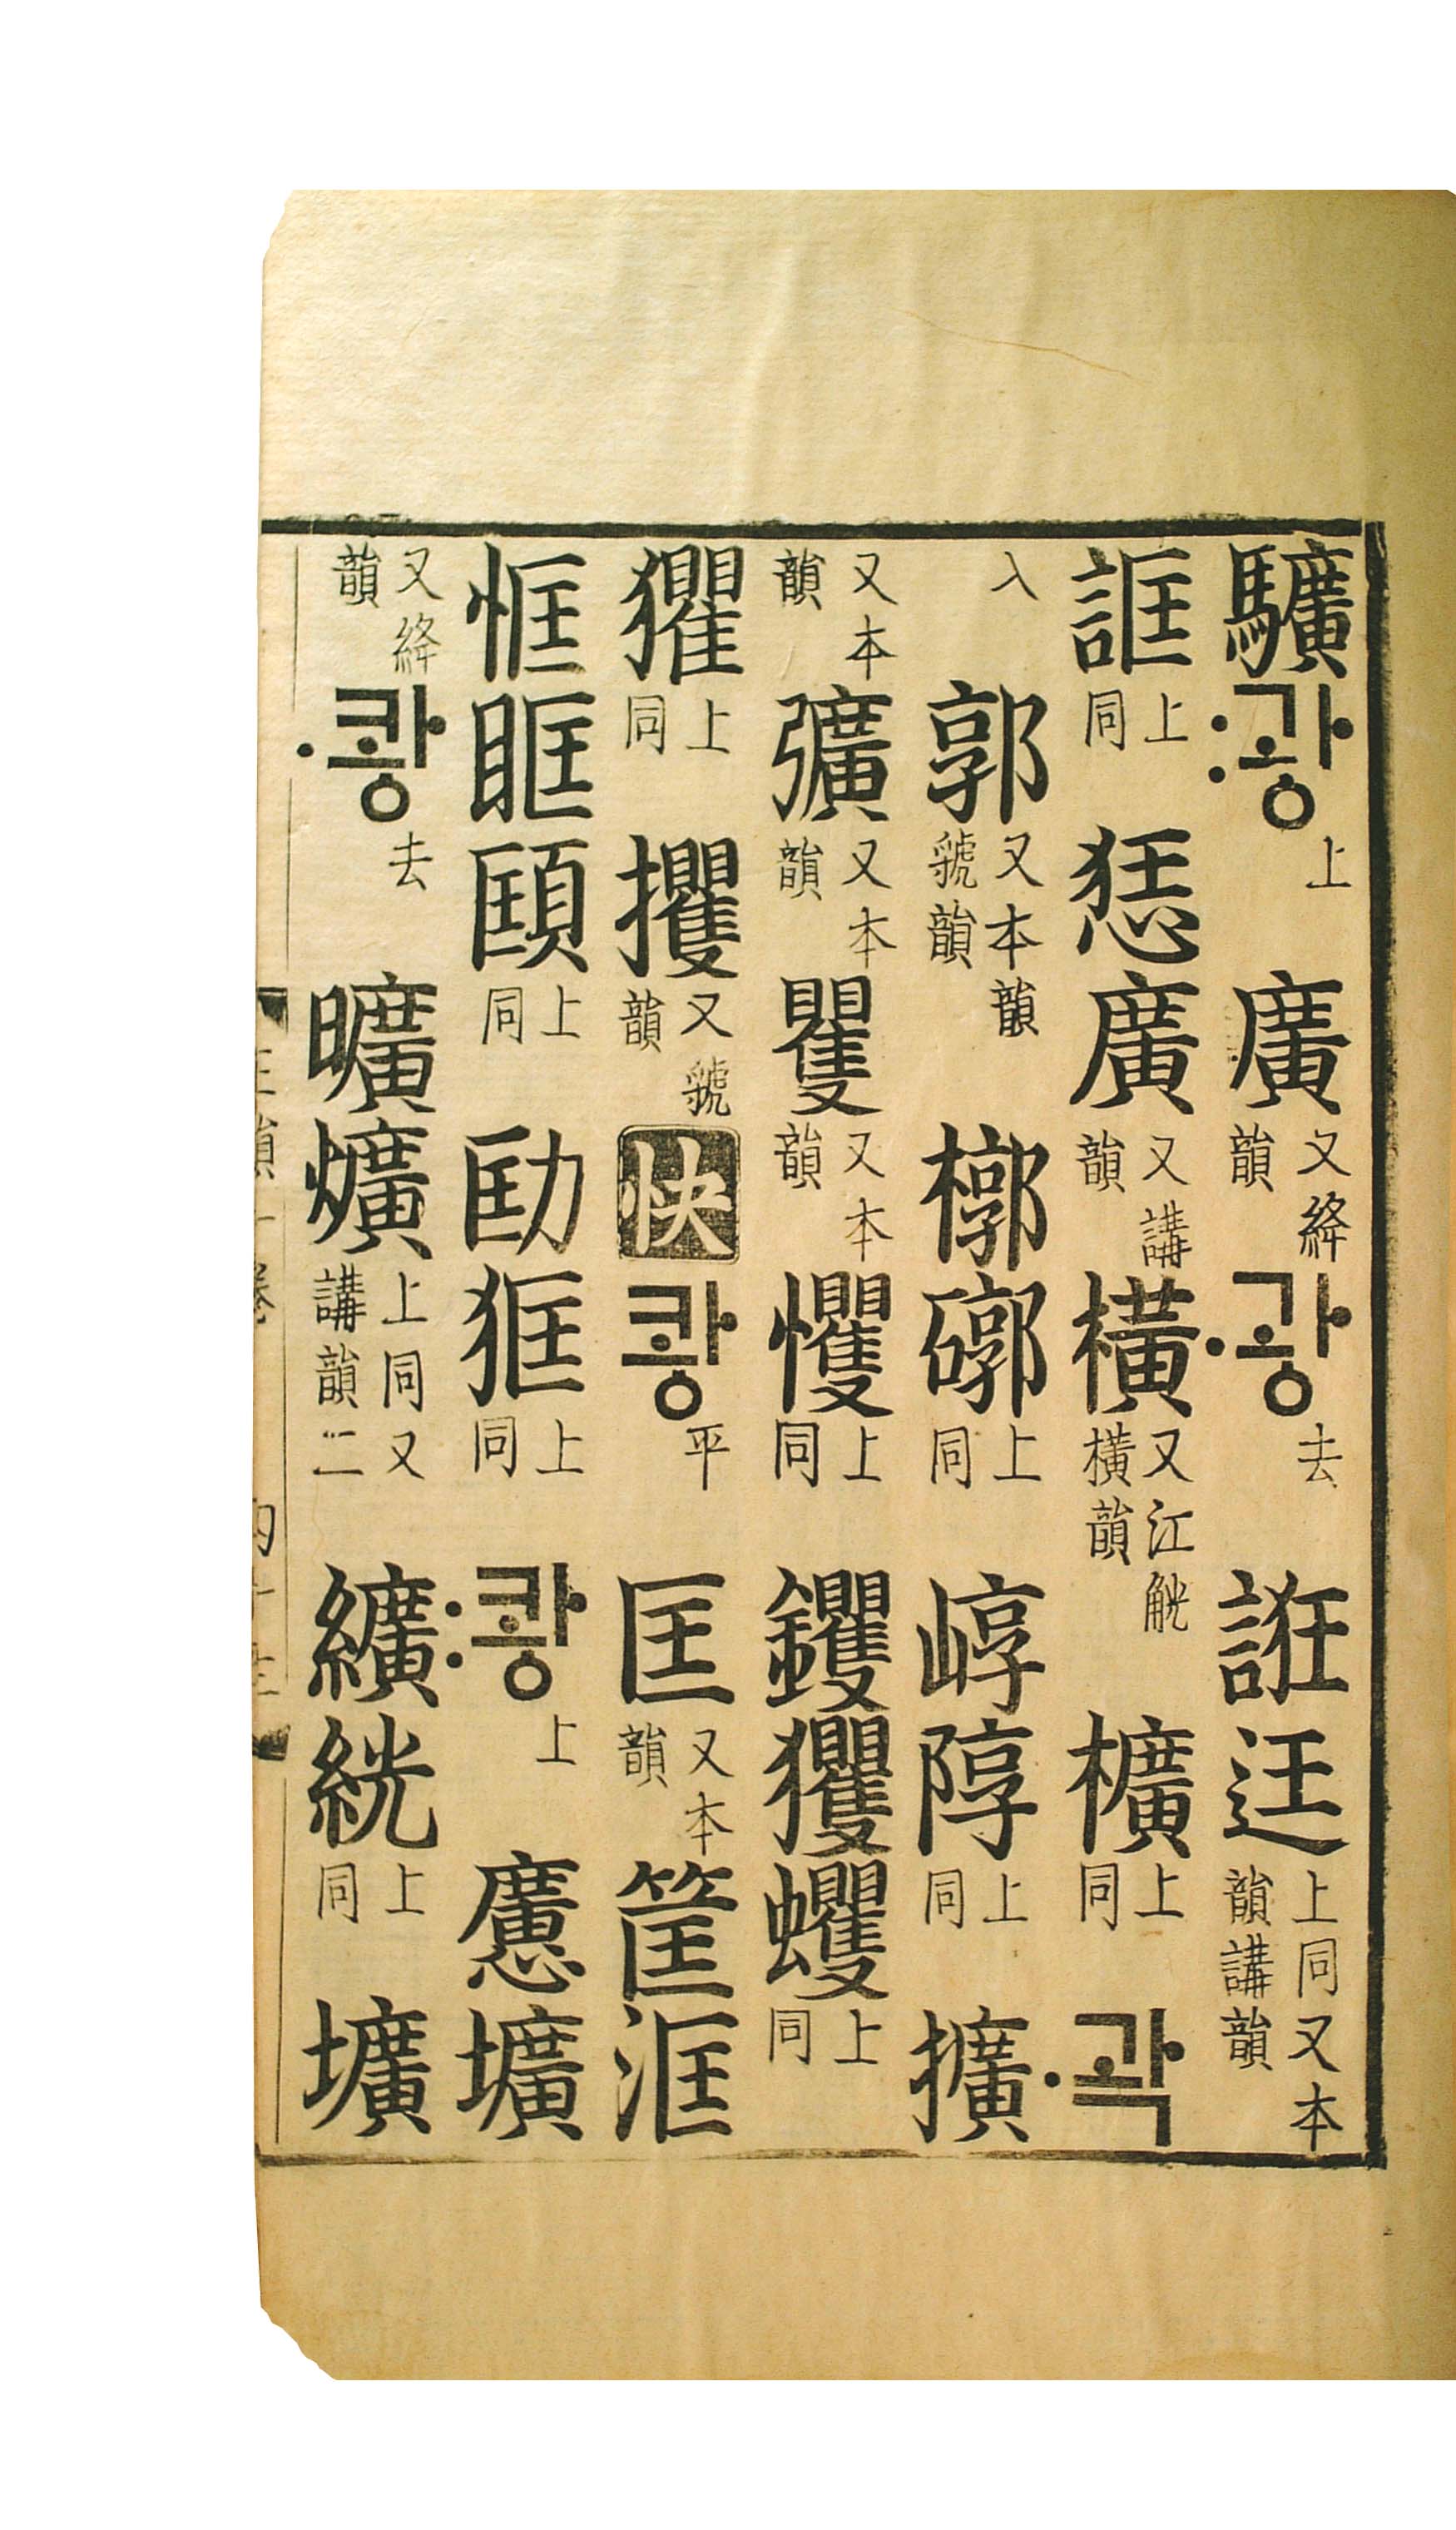 과ᇰ〯上 廣又絳韻 과ᇰ〮去 誑迋上同又本韻講韻
誆上同 廣又講韻 橫又江觥橫韻 櫎上同 곽〮
入 郭又本韻虢韻 槨上同 崞上同 擴
又本韻 彉又本韻 矍又本韻 戄上同 钁玃蠼上同
上同 攫又虢韻 快 콰ᇰ平 匡又本韻 筐洭
恇眶上同 劻上同 콰ᇰ〯上 懬壙
又絳韻 콰ᇰ〮去 曠爌上同又講韻二 纊絖上同 壙